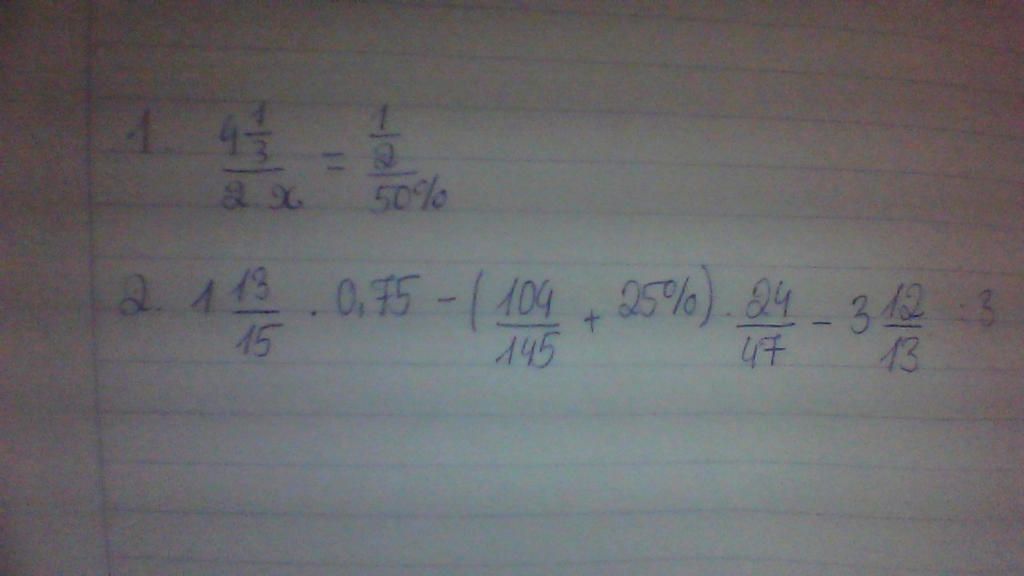 1. 4 1/3 / 2 x = 1/2 / 50%
2. 1 13/15 . 0,75 - (104/145 + 25%) . 24/47 - 3 12/13 : 3